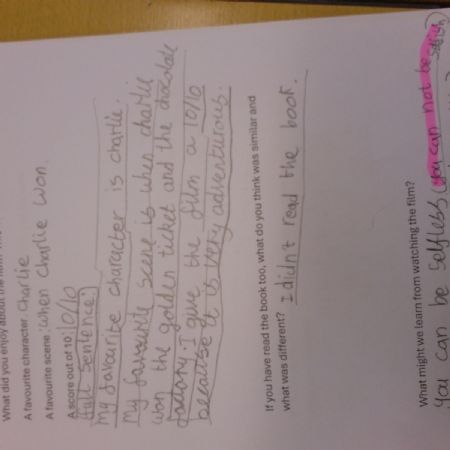 What did you enjoy about the film?
A favourite character: Charlie
A favourite scene: when Charlie won.
A score out of 10: 10/10
full sentence:
my favourite character is charlie.
my favourite scene is when charlie
won the golden ticket and the chocolate
factory. I give the film a 10/10
because it is very adventurous.
If you have read the book too, what do you think was similar and
what was different? I didn't read the book.
What might we learn from watching the film?
you can be selfless (you can not be
selfish)